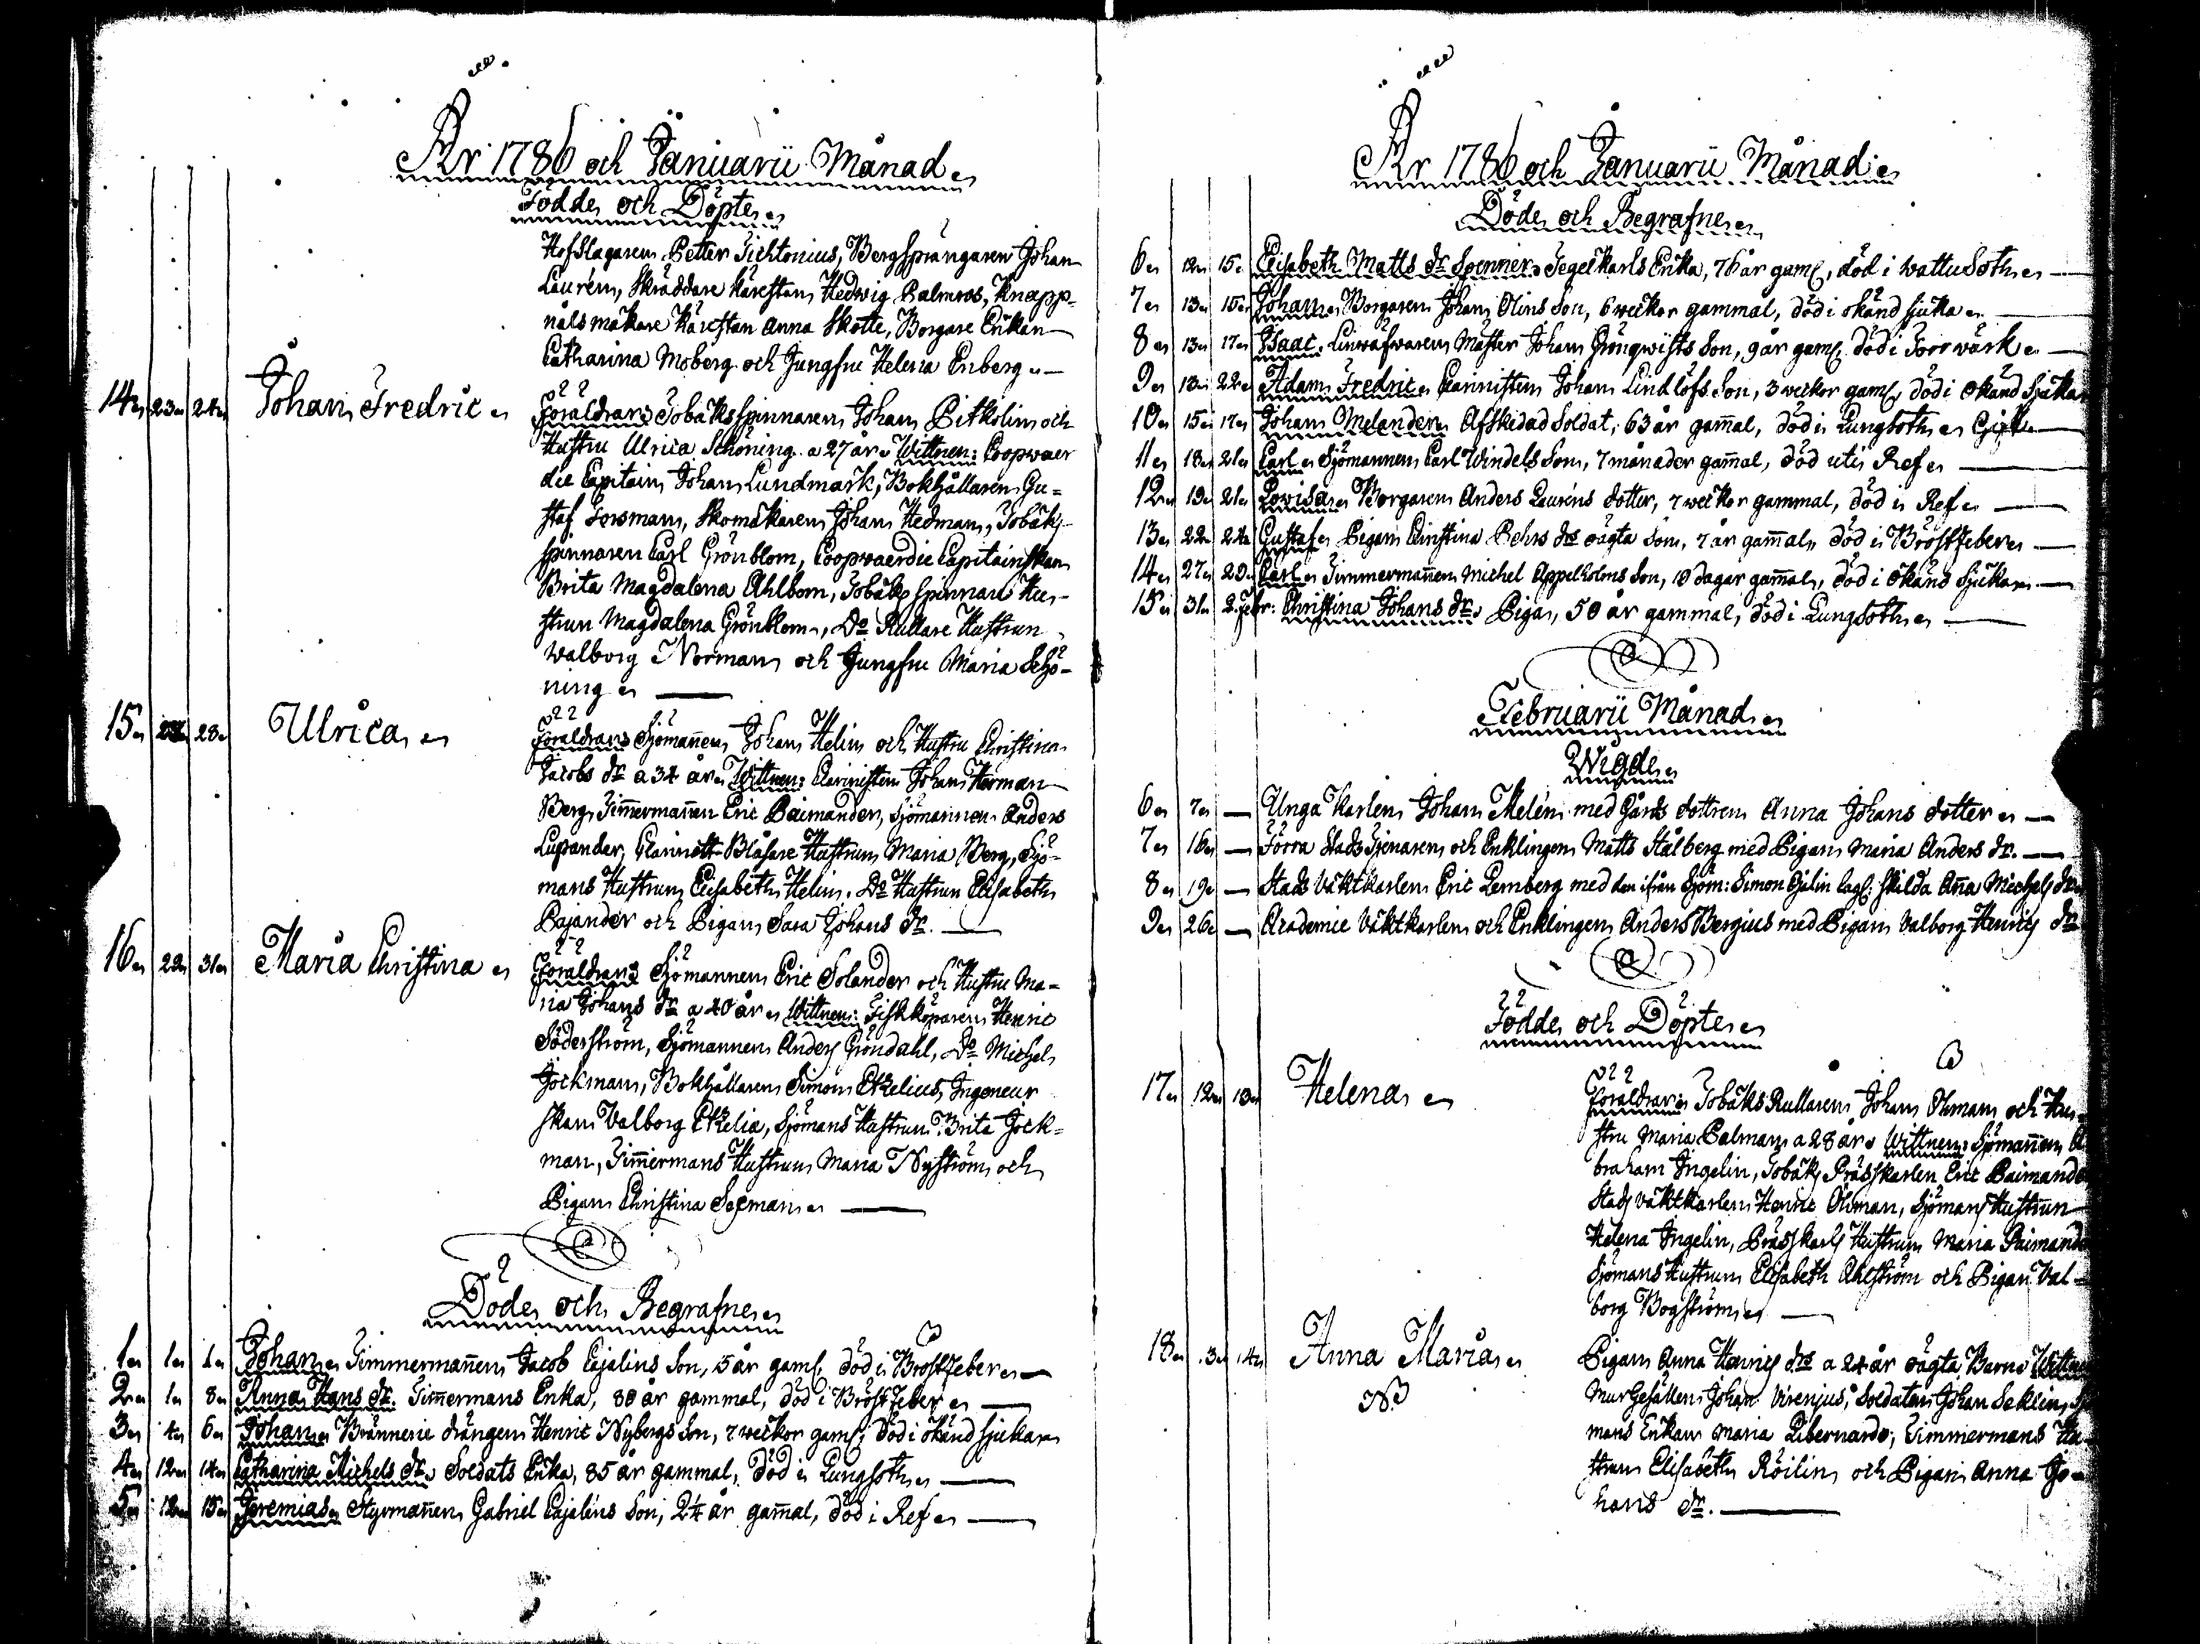 År 1786 och Januarii Månad
Födde och Döpte
Hofslagaren Petter Tichtonius, Bergsprängaren Johan
Laurén, Skräddare kärestan Hedwig Palmros, Knapp-
nåls makare kärestan Anna Skotte, Borgare Enkan
Catharina Moberg och Jungfru Helena Enberg
14 23 24 Johan Fredric Föräldrar: Tobaks spinnaren Johan Bitkolin och
Hustru Ulrica Schöning a 27 år Wittnen: Coopvaer
die Capitain Johan Lundmark, Bokhållaren Gu=
staf Forsman, Skomakaren Johan Hedman, Tobaks
spinnaren Carl Grönblom, Coopvaerdie Capitainskan
Brita Magdalena Ahlbom, Tobaks spinnare Hu-
strun Magdalena Grönblom, Do Rullare Hustrun
Walborg Norman och Jungfru Maria Schö-
ning
15 28 Ulrica Föräldrar: Sjömannen Johan Helin och Hustru Christina
Jacobs dr a 34 år Wittnen: Clarinisten Johan Herman
Berg, Timmermannen Eric Paimander, Sjömannen Anders
Lupander, Clarinett Blåsare Hustrun Maria Berg, Sjö-
mans Hustrun Elisabeth Helin, Do Hustrun Elisabeth
Pajander och Pigan Sara Johans dr.
16 22 31 Maria Christina Föräldrar: Sjömannen Eric Solander och Hustru Ma-
ria Johans dr a 40 år Wittnen: Fiskköparen Henric
Söderström, Sjömannen Anders Gröndahl, Do Michel
Jockman, Bokhållaren Simon Ekelius, Ingeneur
skan Valborg Ekelia, Sjömans Hustrun Brita Jock=
man, Timmermans Hustrun Maria Nyström och
Pigan Christina Sexman
Döde och Begrafne
1 1 1 Johan Timmermannen Jacob Cajalins Son, 5 år gaml, död i Bröstfeber
2 1 8 Anna Hans dr. Timmermans Enka, 80 år gammal, död i Bröstfeber
3 4 6 Johan Brännerie drängen Henric Nybergs Son, 7 weckor gaml, död i okänd sjukan
4 12 14 Catharina Michels dr Soldats Enka, 85 år gammal, död i Lungsoth
5 12 15 Jeremias Styrmannen Gabriel Cajaléns Son, 2¼ år gamal, död i Ref
År 1786 och Januarii Månad
Döde och Begrafne
6 12 15 Elisabeth Matts dr Spennér Segelkarls Enka, 76 år gaml, död i Wattusoth
7 13 15 Johan Borgaren Johan Olins Son, 6 weckor gammal, död i okänd sjuka
8 13 17 Isaac Linwäfwaren Mäster Johan Gröngwists Son, 9 år gaml, död i Torrwärk
9 13 22 Adam Fredric Clarinisten Johan Lindlöfs Son, 3 weckor gaml, död i okänd Sjuka
10 15 17 Johan Melander Afskedad Soldat, 63 år gamal, död i Lungsoth
11 18 21 Carl Sjömannen Carl Windels Son, 7 månader gamal, död uti Ref
12 19 21 Lovisa Borgaren Anders Lauréns dotter, 7 weckor gammal, död i Ref
13 22 24 Gustaf Pigan Christina Pehrs drs oägta Son, 7 år gamal, död i Bröstfeber
14 27 29 Carl Timmermannen Michel Appelholms Son, 10 dagar gamal, död i okänd Sjukan
15 31 2 Febr: Christina Johans dr Piga, 50 år gammal, död i Lungsoth
Februarii Månad
Wigde
6 7 Unga Karlen Johan Melén med Gårds dottren Anna Johans dotter
7 16 Förra Stads Tjenaren och Enklingen Matts Stålberg med Pigan Maria Anders dr.
8 19 Stads Väktkarlen Eric Lemberg med den ifrån Sjöm: Simon Cjulin lagl: skilda Anna Michels dr
9 26 Academie Väktkarlen och Enklingen Anders Bergius med Pigan Valborg Henrics dr
Födde och Döpte
17 12 13 Helena Föräldrar: Tobaks Rullaren Johan Öhman och Hu-
stru Maria Palman a 28 år Wittnen: Sjömannen A
braham Ingelin, Tobaks Prässkarlen Eric Paimander
Stads Väktkarlen Henric Öhman, Sjömans Hustrun
Helena Ingelin, Prässkarls Hustrun Maria Paimander
Sjömans Hustrun Elisabeth Ahlström och Pigan Val-
borg Bogström
18 3 4 Anna Maria Pigan Anna Henrics drs a 24 år oägta Barn Wittnen
NB Mur Gesällen Johan Virenius, Soldaten Johan Seklin,
mans Enkan Maria Libernardo, Timmermans Hu-
strun Elisabeth Röilin och Pigan Anna Jo-
hans dr.